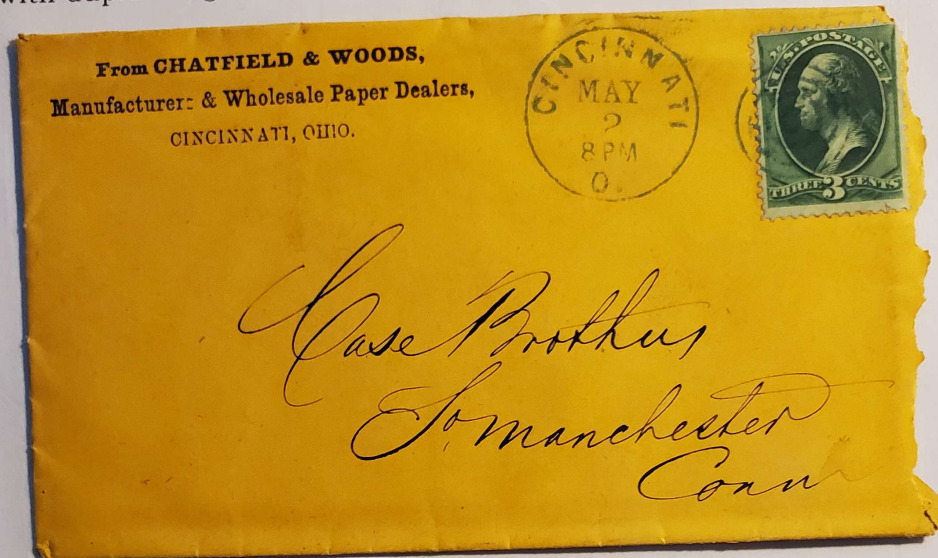 From CHATFIELD & WOODS,
Manufacturers & Wholesale Paper Dealers,
CINCINNATI, OHIO.
CINCINNATI
MAY
2
8 PM
O.
U.S. POSTAGE
THREE 3 CENTS
Case Brothers
So. Manchester
Conn